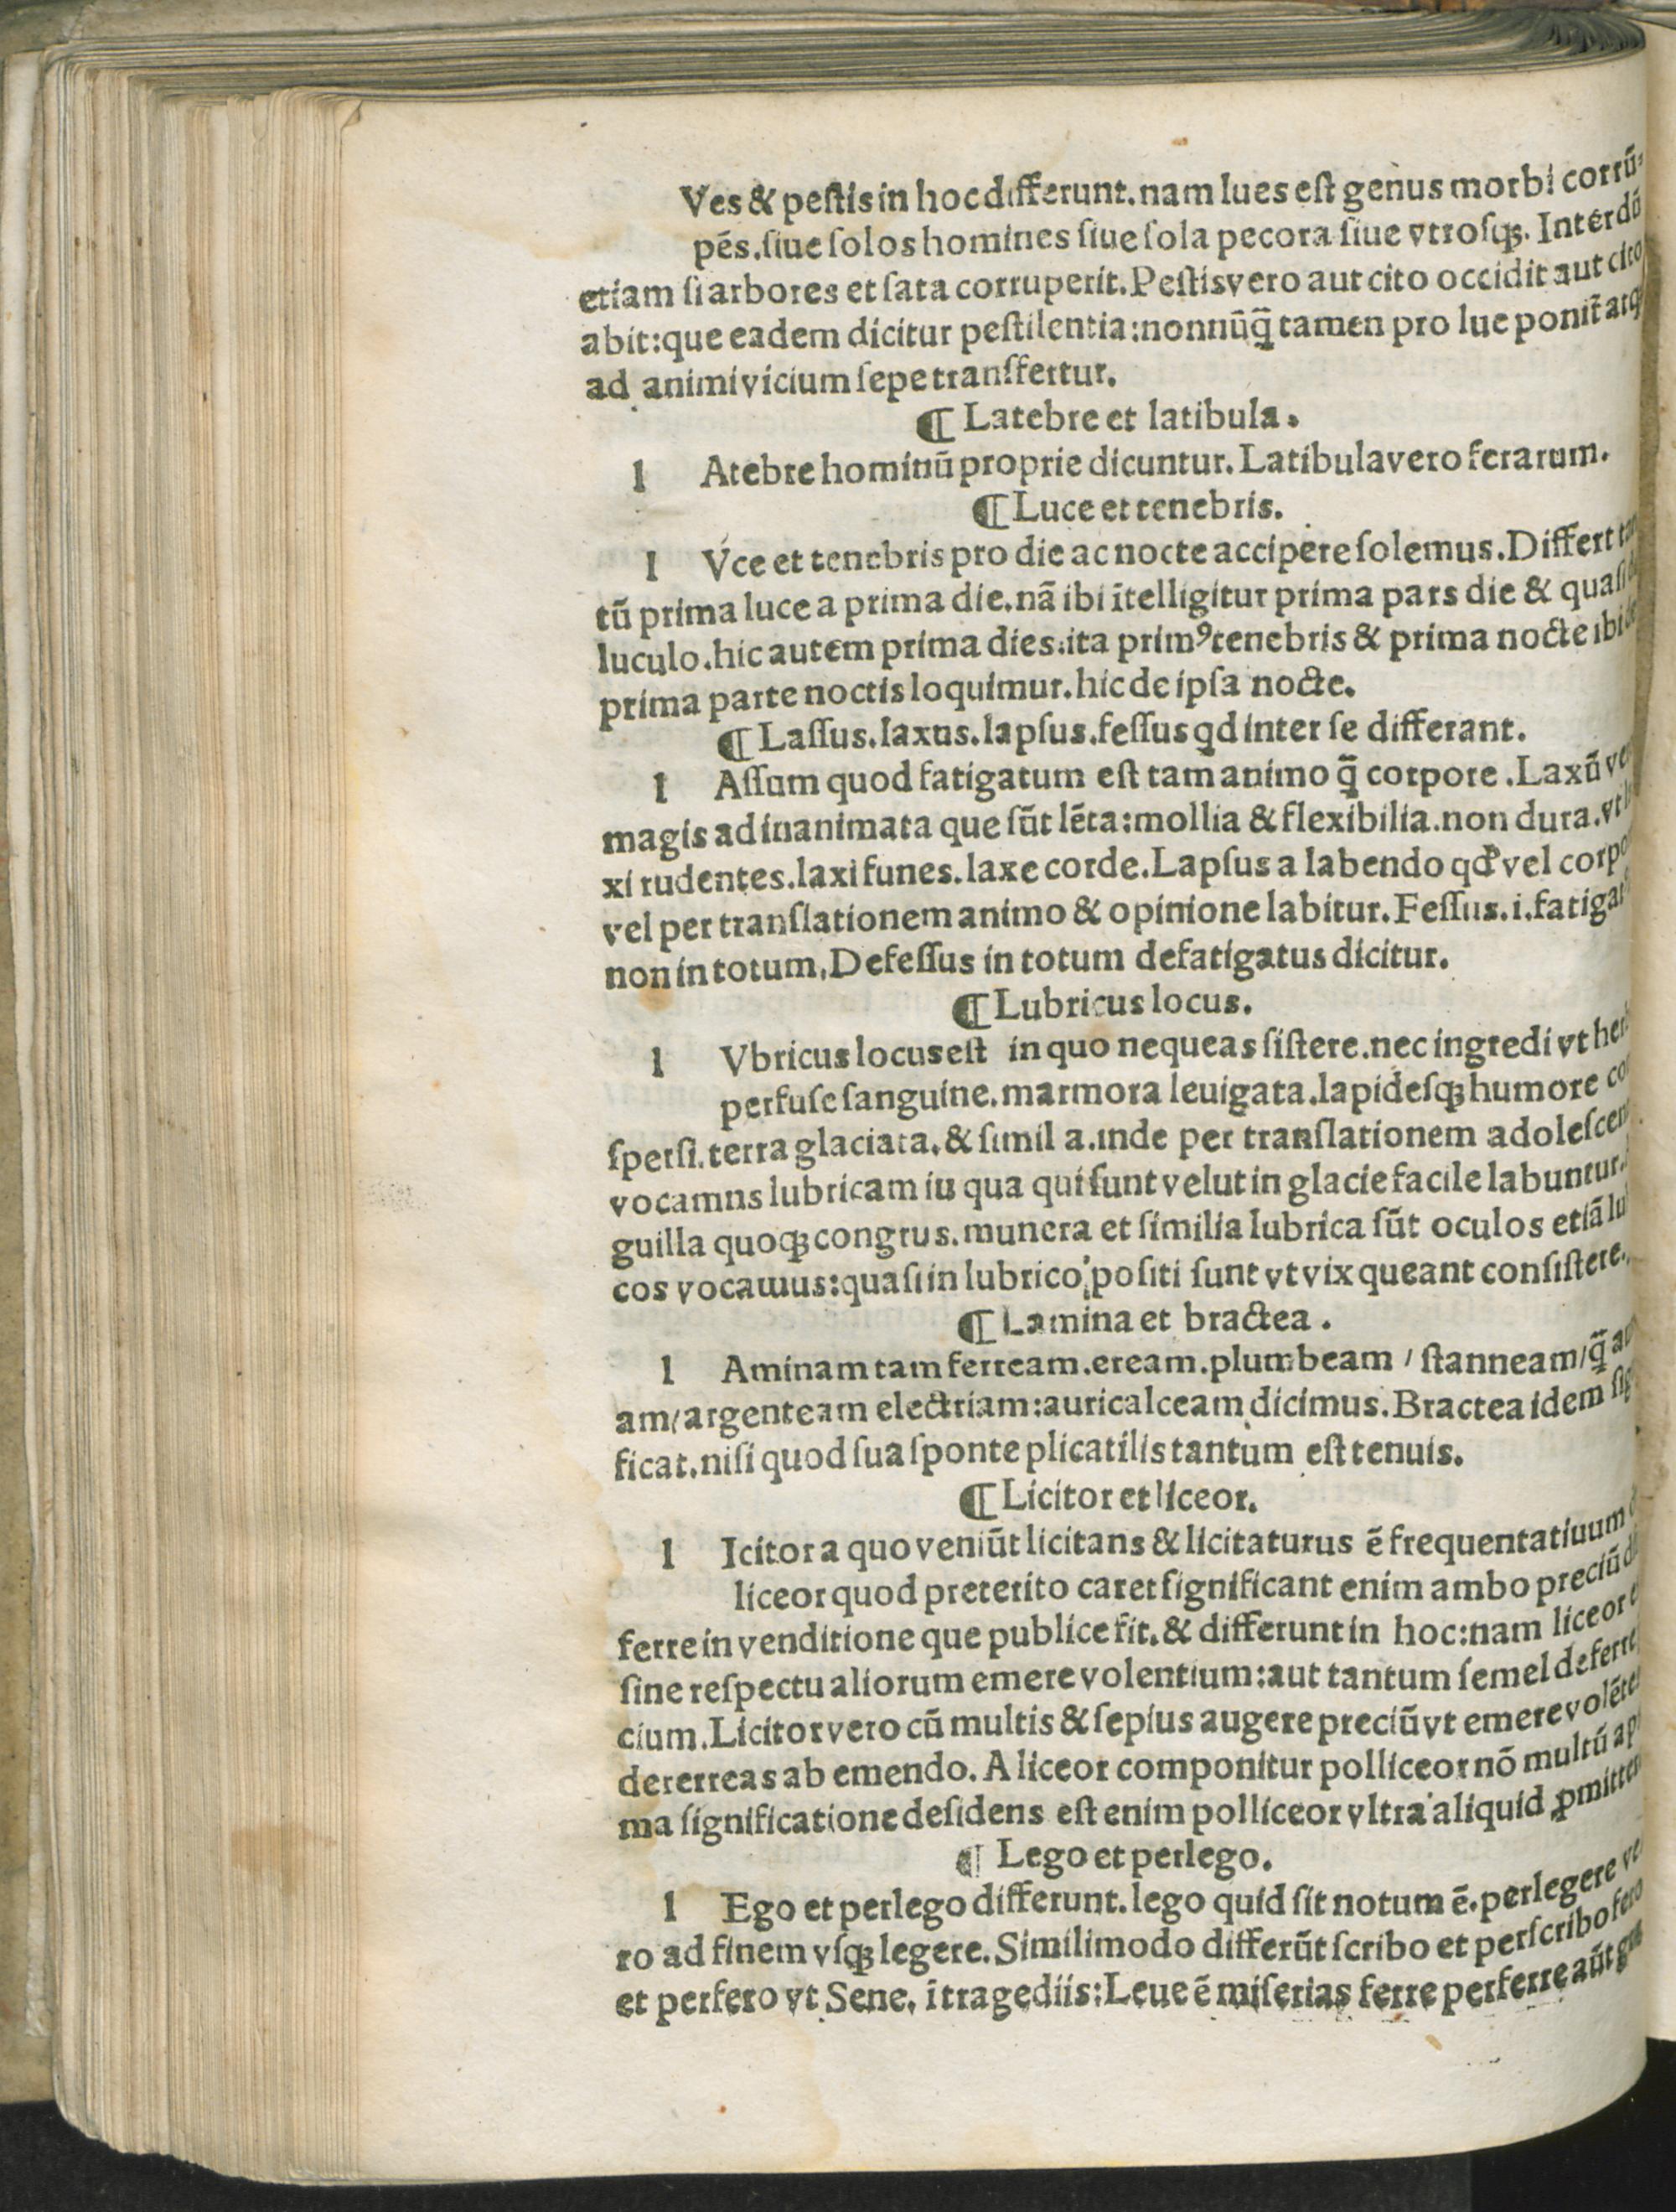 Ves & peſtis in hoc differunt. nam lues eſt genus morbi corrū-
pēs. ſiue ſolos homines ſiue ſola pecora ſiue vtroſqꝫ. Interdū
etiam ſi arbores et ſata corruperit. Peſtis vero aut cito occidit aut cito
abit: que eadem dicitur peſtilentia: nonnūq̄ tamen pro lue ponit̄ atqꝫ
ad animi vicium ſepe tranſfertur.
¶ Latebre et latibula.
l Atebre hominū proprie dicuntur. Latibula vero ferarum.
¶ Luce et tenebris.
l Vce et tenebris pro die ac nocte accipere ſolemus. Differt
tū prima luce a prima die. nā ibi ītelligitur prima pars die & quaſi
luculo. hic autem prima dies. ita primꝰ tenebris & prima nocte ibi
prima parte noctis loquimur. hic de ipſa nocte.
¶ Laſſus. laxus. lapſus. feſſus qd inter ſe differant.
l Aſſum quod fatigatum eſt tam animo q̄ corpore. Laxū
magis ad inanimata que ſūt lēta: mollia & flexibilia. non dura. vt
xi rudentes. laxi funes. laxe corde. Lapſus a labendo qd vel
vel per tranſlationem animo & opinione labitur. Feſſus. i.
non in totum, Defeſſus in totum defatigatus dicitur.
¶ Lubricus locus.
l Vbricus locus eſt in quo nequeas ſiſtere. nec ingredi vt
perfuſe ſanguine. marmora leuigata. lapideſqꝫ humore
ſperſi. terra glaciata. & ſimil a. inde per tranſlationem
vocamus lubricam iu qua qui ſunt velut in glacie facile labuntur.
guilla quoqꝫ congrus. munera et ſimilia lubrica ſūt oculos etiā
cos vocamus: quaſi in lubrico poſiti ſunt vt vix queant conſiſtere.
¶ Lamina et bractea.
l Aminam tam ferream. eream. plumbeam / ſtanneam / q̄
am / argenteam electriam: auricalceam dicimus. Bractea idem
ficat. niſi quod ſua ſponte plicatilis tantum eſt tenuis.
¶ Licitor et liceor.
l Icitor a quo veniūt licitans & licitaturus ē frequentatiuum
liceor quod preterito caret ſignificant enim ambo preciū
ferre in venditione que publice fit. & differunt in hoc: nam liceor
ſine reſpectu aliorum emere volentium: aut tantum ſemel deferre
cium. Licitor vero cū multis & ſepius augere preciū vt emere
dererreas ab emendo. A liceor componitur polliceor nō multū
ma ſignificatione deſidens eſt enim polliceor vltra aliquid
¶ Lego et perlego.
l Ego et perlego differunt. lego quid ſit notum ē. perlegere ve
ro ad finem vſqꝫ legere. Simili modo differūt ſcribo et perſcribo fero
et perfero vt Sene. ī tragediis: Leue ē miſerias ferre perferre aūt